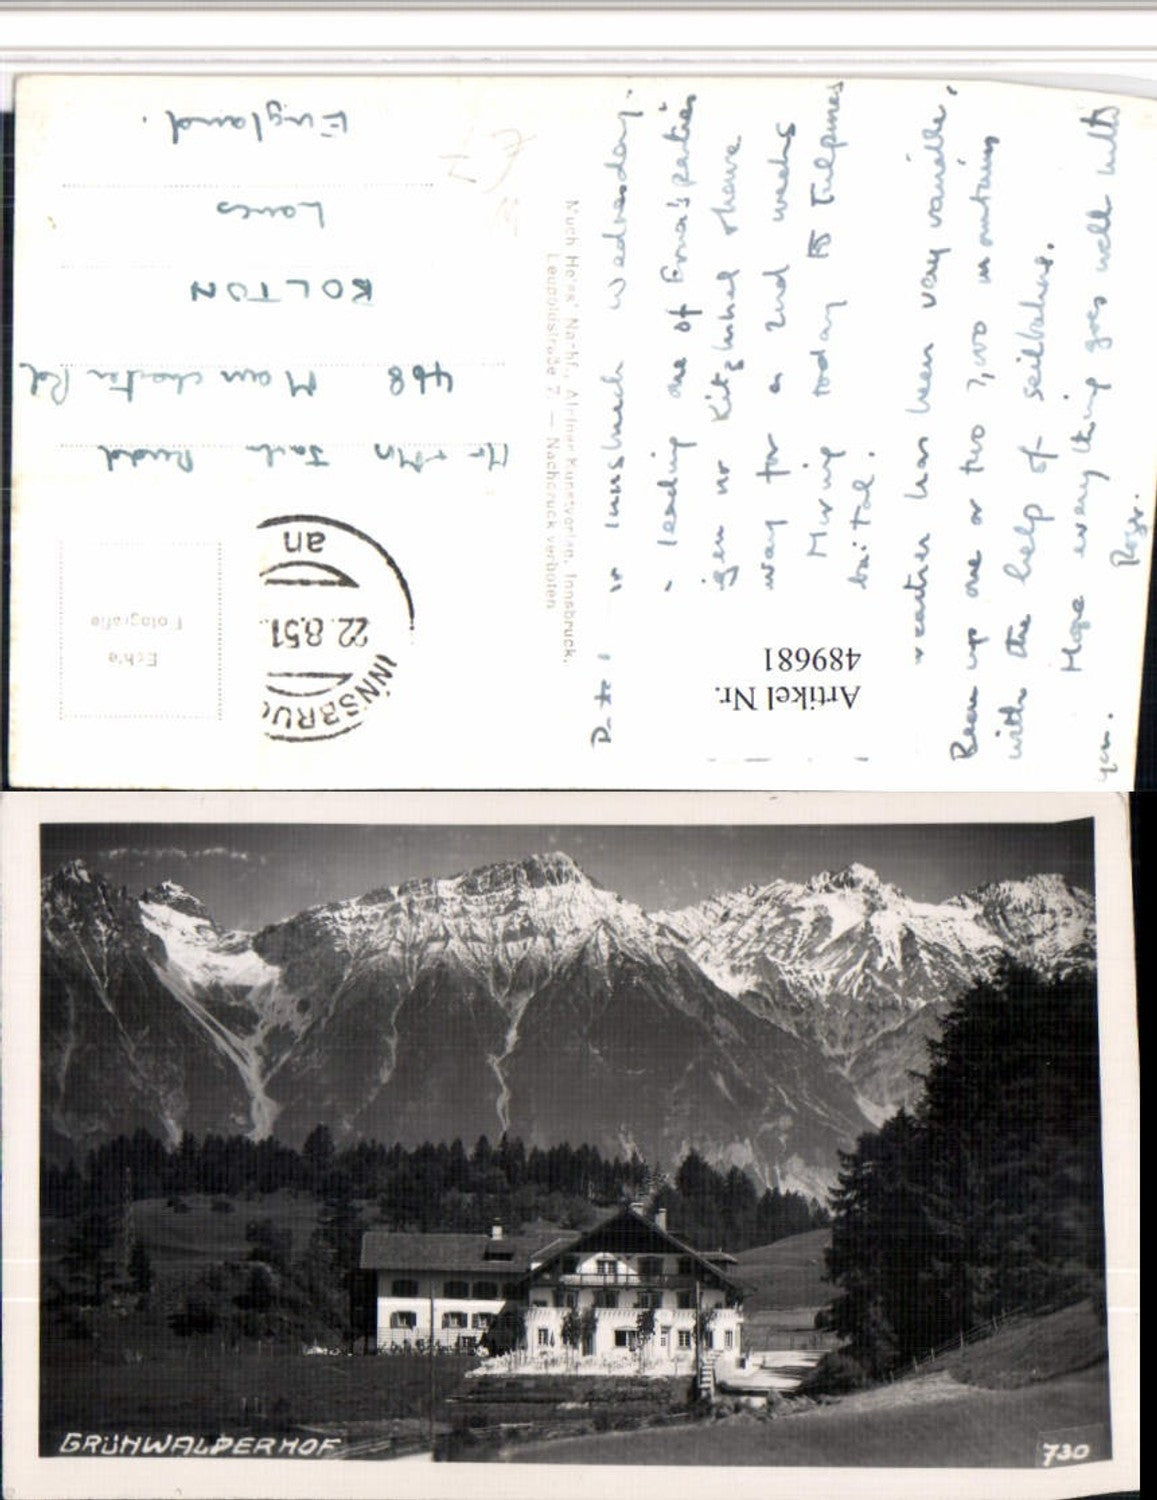 in Innsbruck Wednesday.
leading one of Erna's parties
nr Kitzbuhel & have
way for a 2nd weeks
Moving today to Fulpmes
weather has been very variable.
Been up one or two 7,000 mountains
with the help of seilbahns.
Hope everything goes well with
you. Roger.
Artikel Nr.
489681
Much Heiss' Nachf., Alpiner Kunstverlag, Innsbruck,
Leupoldstraße 7. — Nachdruck verboten
Echte
Fotografie
INNSBRUC
22.8.51.
an
Mr & Mrs Jack
468 Manchester Rd
BOLTON
Lancs
England.
GRÜNWALDERHOF
730